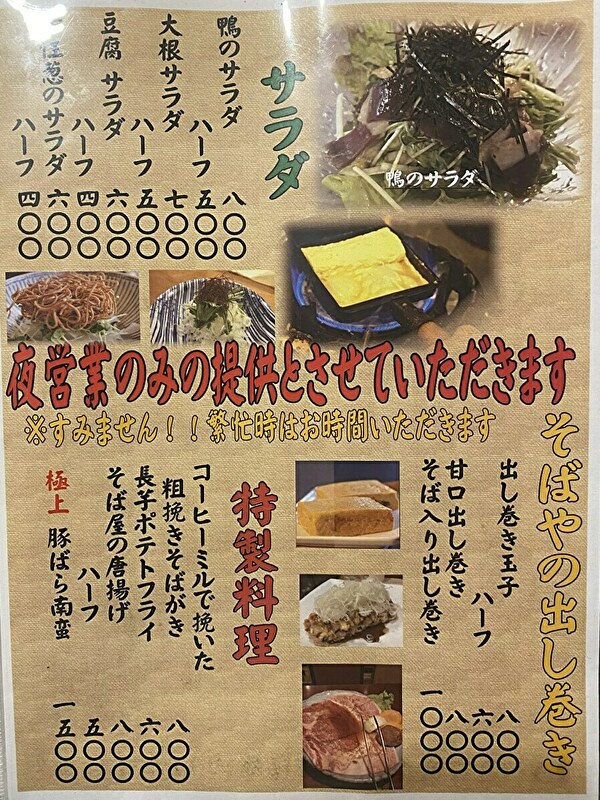 サラダ
鴨のサラダ 八〇〇
ハーフ 五〇〇
大根サラダ 七〇〇
ハーフ 五〇〇
豆腐サラダ 六〇〇
ハーフ 四〇〇
葱のサラダ 六〇〇
ハーフ 四〇〇
鴨のサラダ
夜営業のみの提供とさせていただきます
※すみません！！繁忙時はお時間いただきます
そばやの出し巻き
出し巻き玉子 八〇〇
ハーフ 六〇〇
甘口出し巻き 八〇〇
そば入り出し巻き 一〇〇〇
特製料理
コーヒーミルで挽いた
粗挽きそばがき 八〇〇
長芋ポテトフライ 六〇〇
そば屋の唐揚げ 八〇〇
ハーフ 五〇〇
極上 豚ばら南蛮 一五〇〇